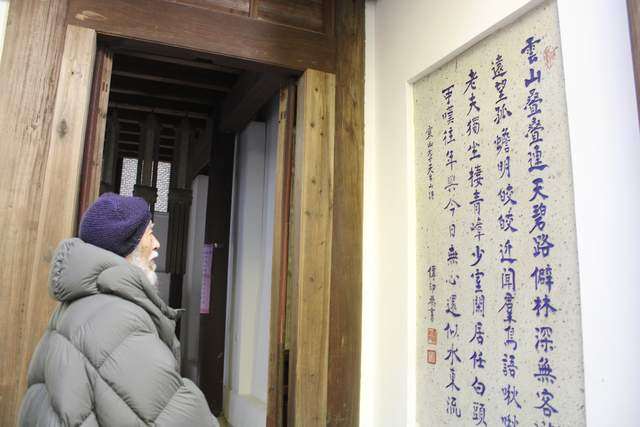 雲山叠叠連天碧路僻林深無客遊
遠望孤蟾明皎皎近聞羣鳥語啾啾
老夫獨坐棲青嶂少室閑居任白頭
可嘆往年與今日無心還似水東流
寒山